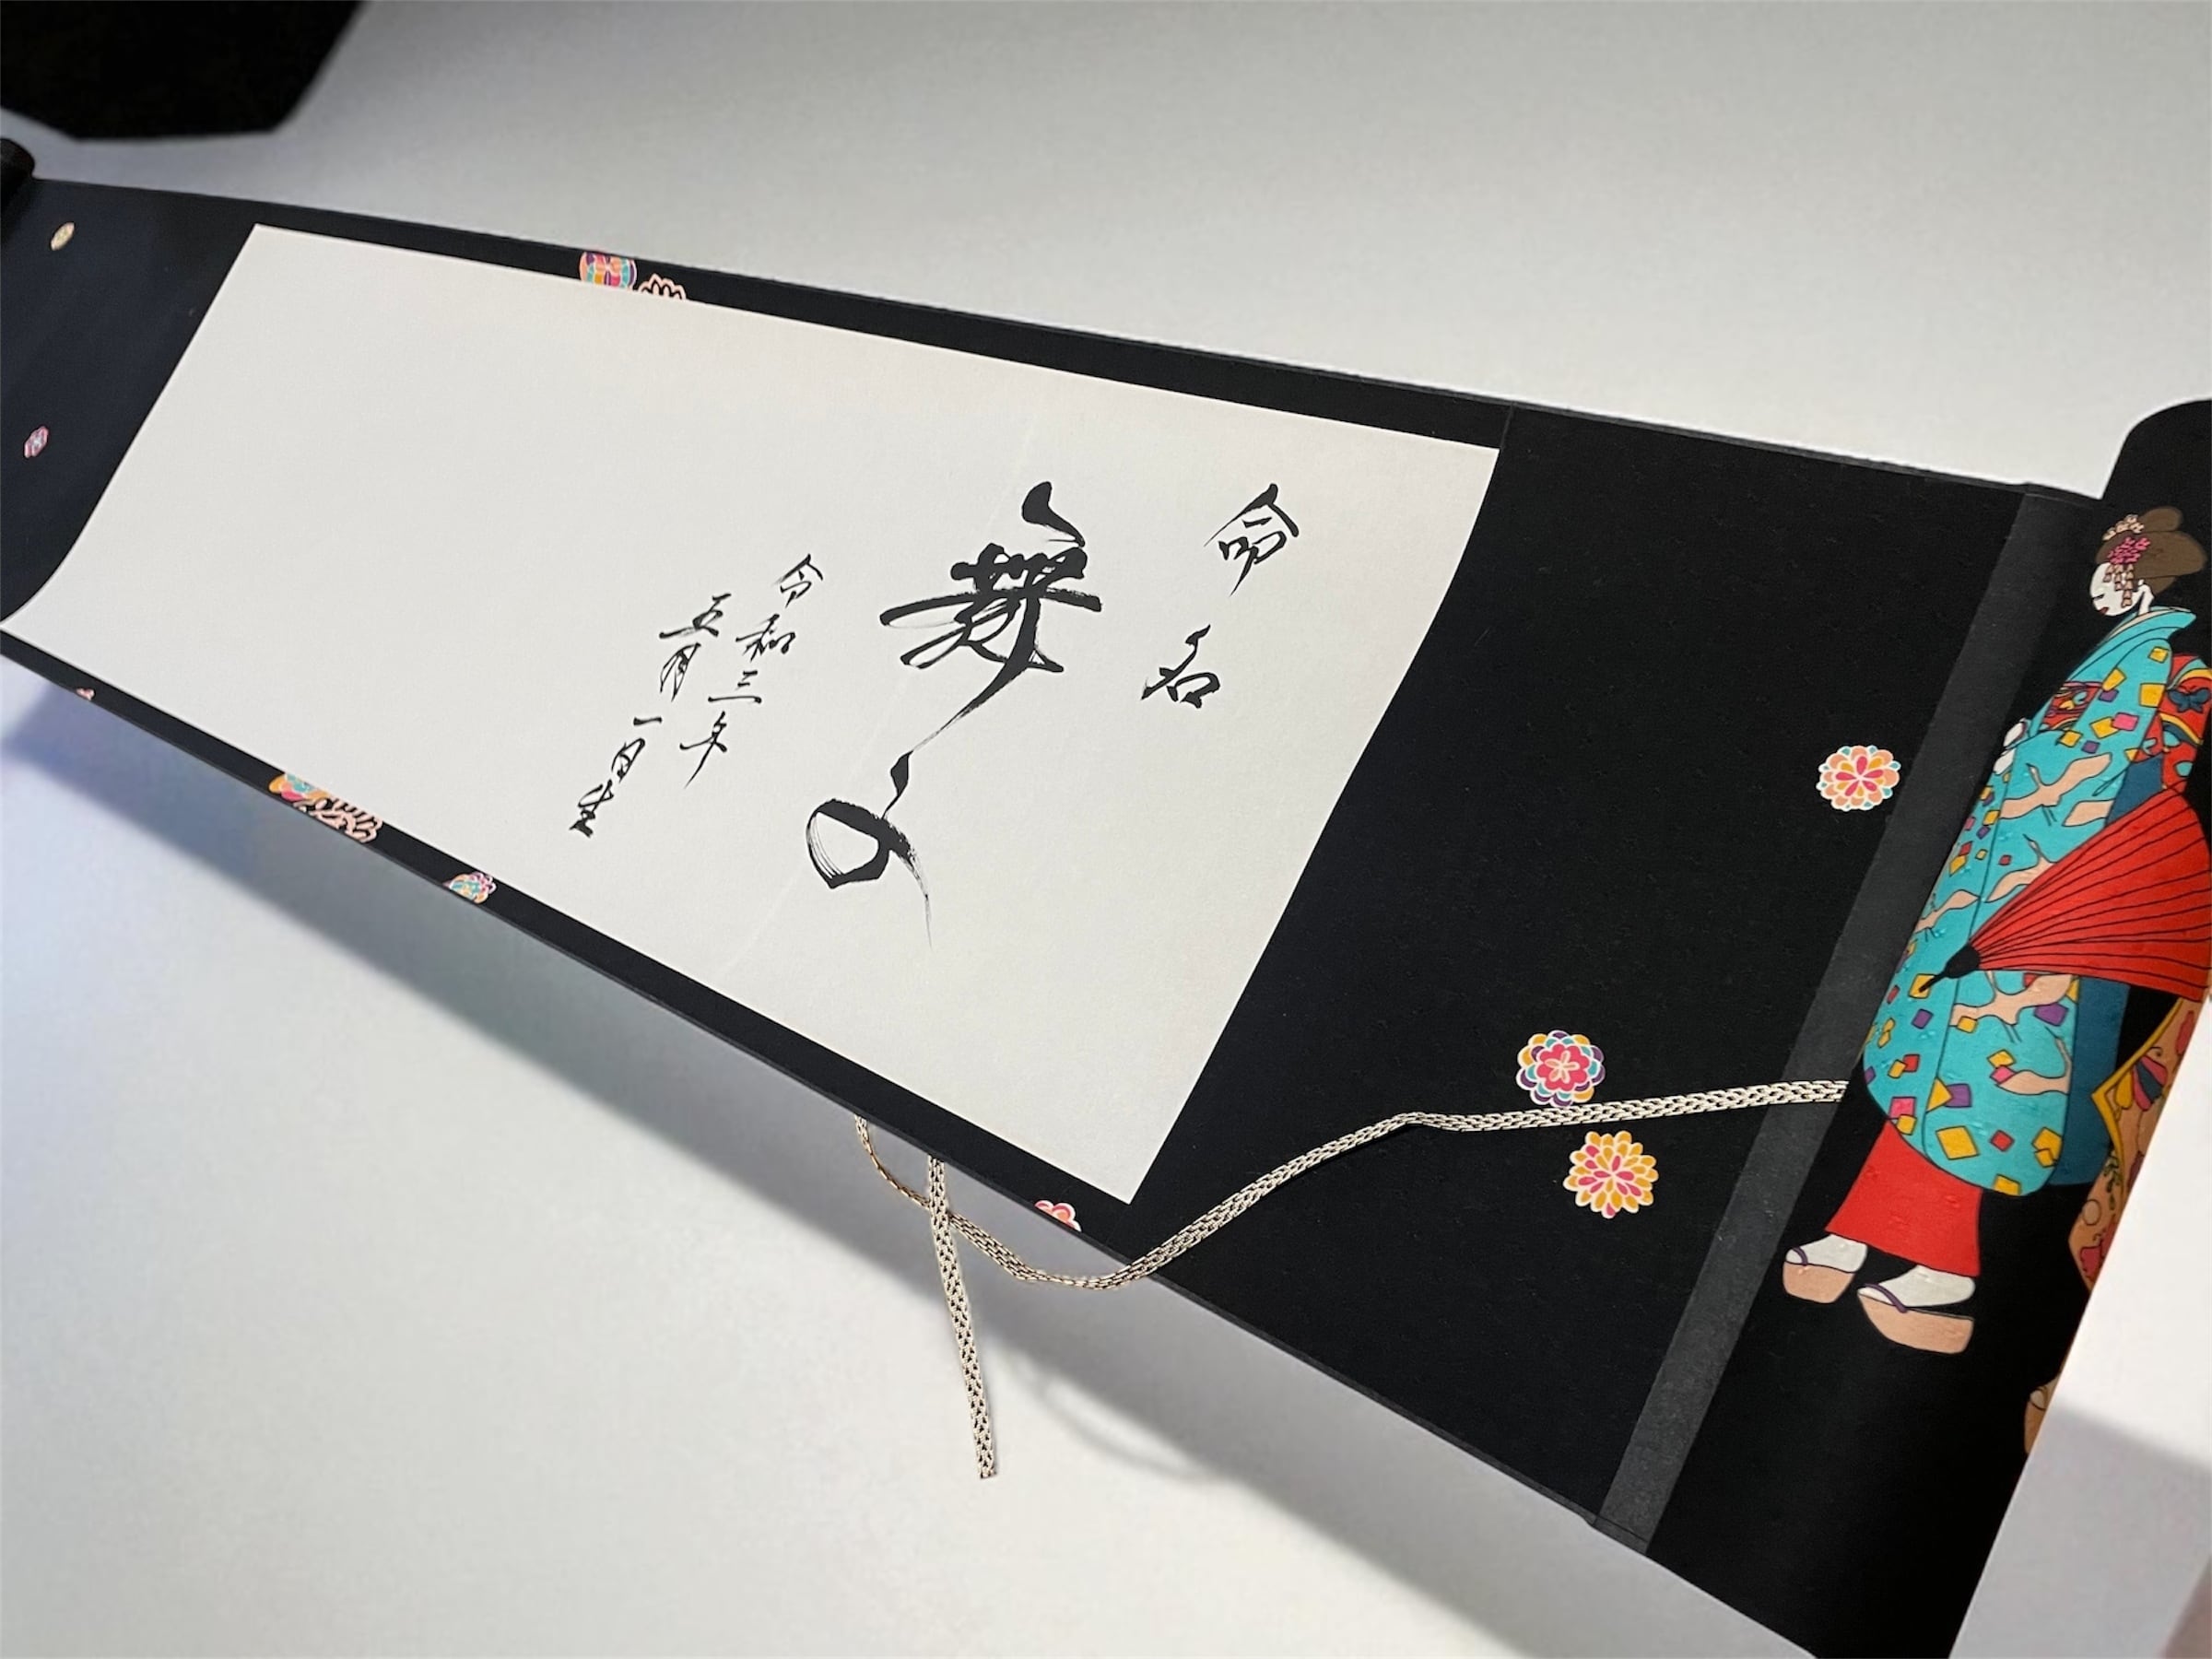 命名
舞子
令和三年
五月一日生